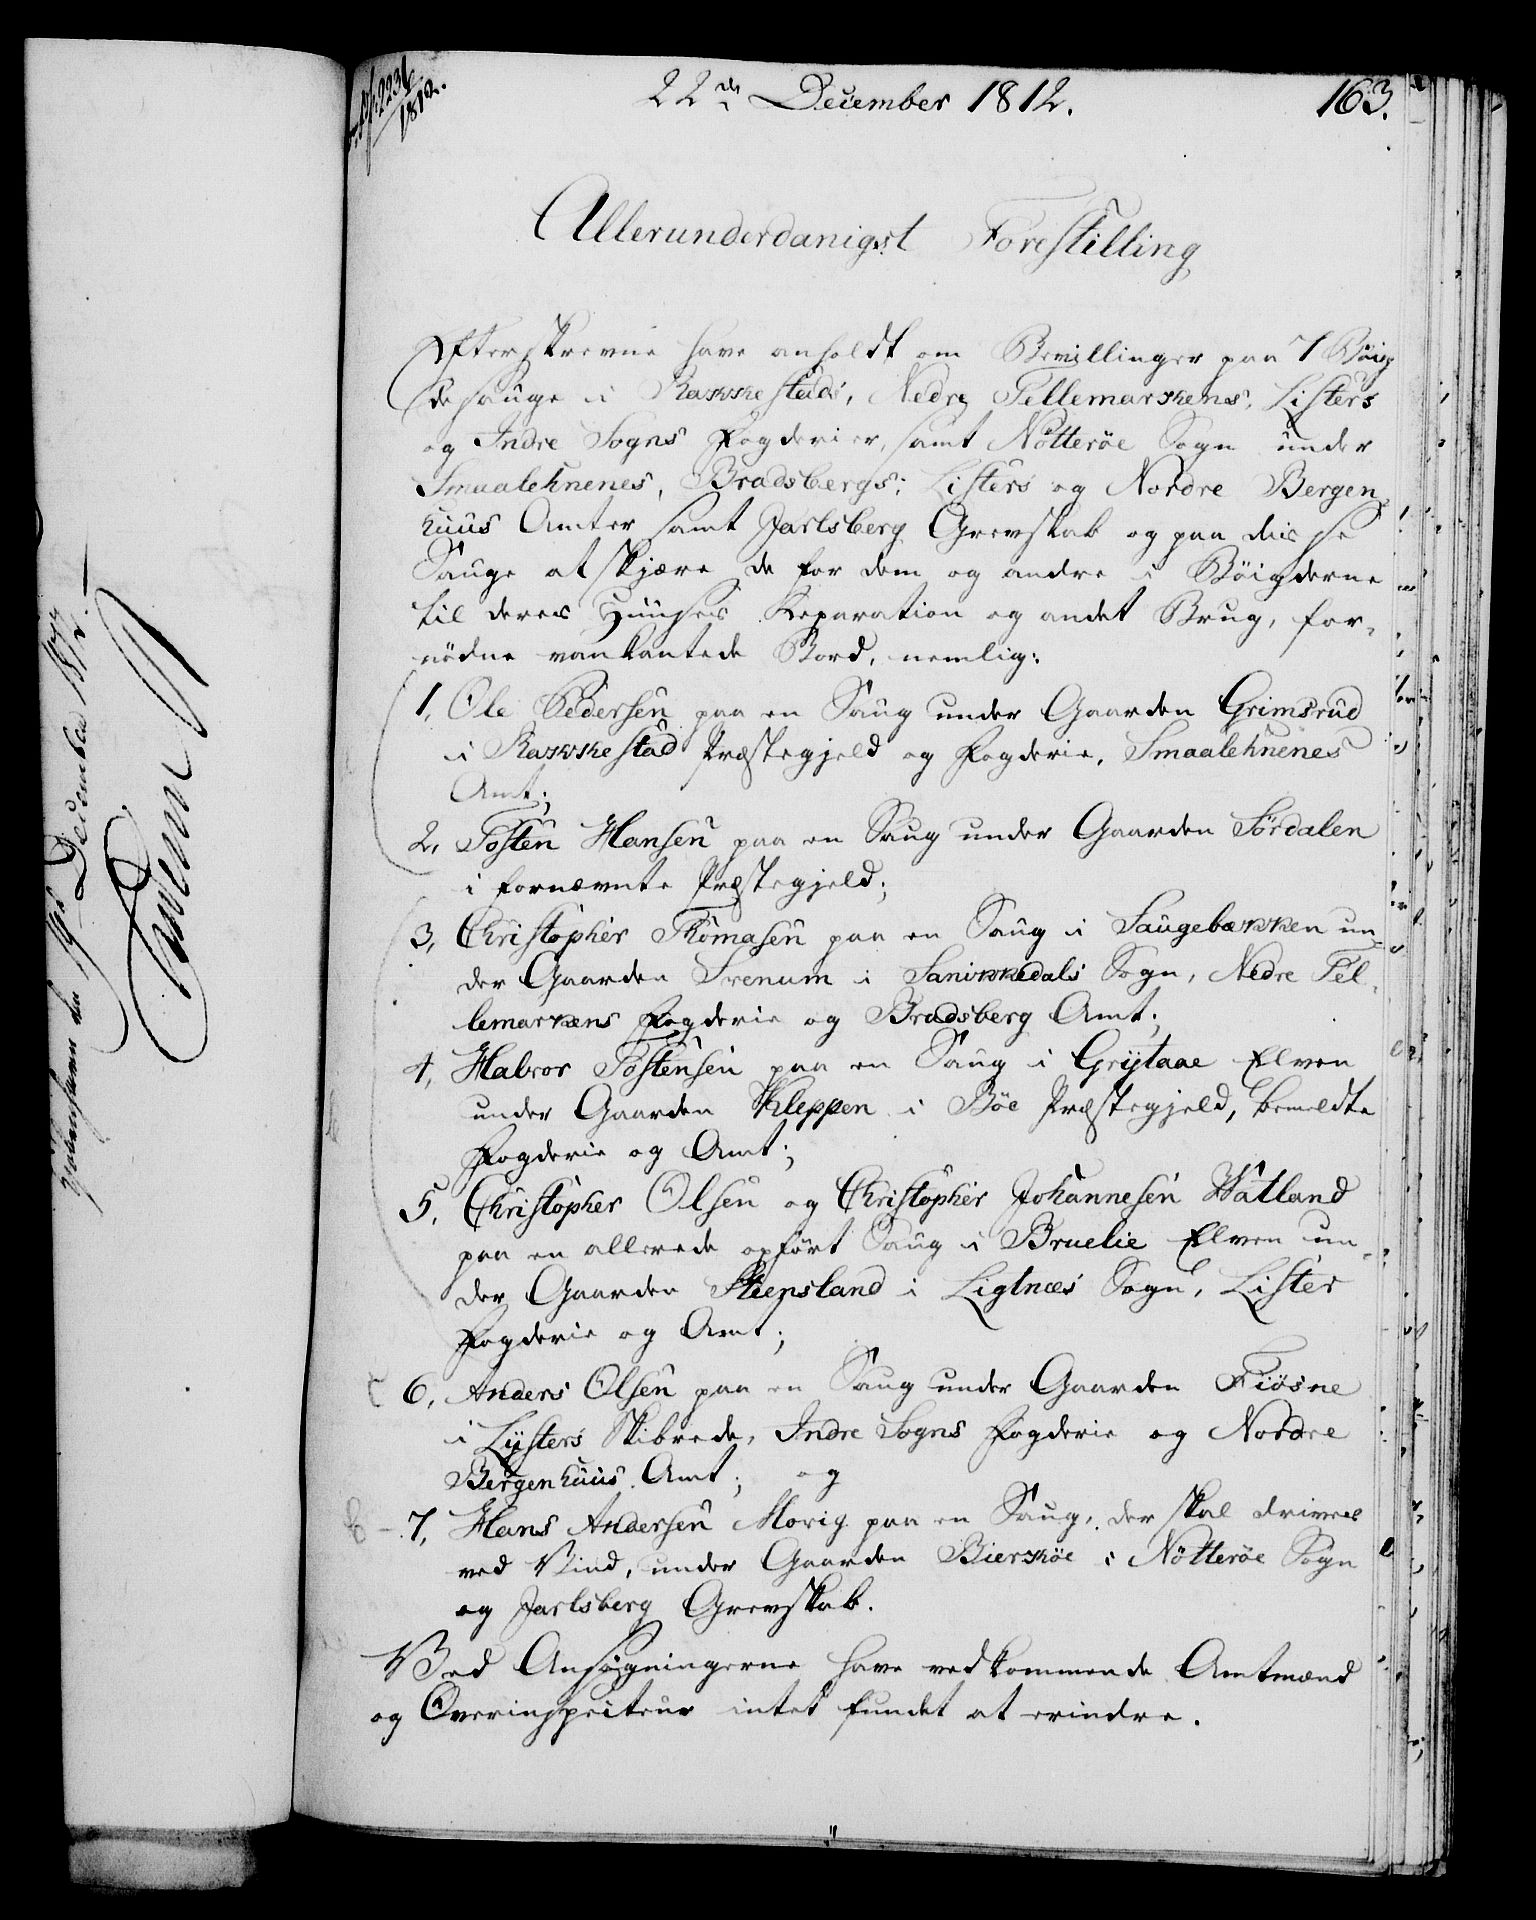 2231/1812.
22de December 1812.
163.
Allerunderdanigst Forestilling
Efterskrevne have anholdt om Bevillinger paa 7 Böig
desauge i Rakkestads, Nedre Tellemarkens, Listers
og Indre Sogns Fogderier, samt Nötteröe Sogn under
Smaalehnenes, Bradsbergs, Listers og Nordre Bergen-
huus Amter samt Jarlsberg Grevskab og paa disse
Sauge at skjære de for dem og andre i Böigderne
til deres Huuses Reparation og andet Brug, for-
nödne vankantede Bord, nemlig:
1, Ole Pedersen paa en Saug under Gaarden Grimsrud
i Rakkestad Præstegjeld og Fogderie, Smaalehnenes
Amt;
2, Tosten Hansen paa en Saug under Gaarden Sördalen
i fornævnte Præstegjeld;
3, Christopher Thomasen paa en Saug i Saugebækken un-
der Gaarden Srenum i Sanikkedals Sogn, Nedre Tel-
lemarkens Fogderie og Bradsberg Amt;
4, Halvor Tostensen paa en Saug i Grytaae Elven
under Gaarden Kleppen i Böe Præstegjeld, bemeldte
Fogderie og Amt;
5, Christopher Olsen og Christopher Johannesen Watland
paa en allerede opfört Saug i Bruelie Elven un-
der Gaarden Steensland i Liglnæs Sogn, Lister
Fogderie og Amt;
6, Anders Olsen paa en Saug under Gaarden Fiösne
i Lysters Skibrede, Indre Sogns Fogderie og Nordre
Bergenhuus Amt; og
7, Hans Andersen Morig paa en Saug, der skal drives
ved Vind, under Gaarden Bierköe i Nötteröe Sogn
og Jarlsberg Grevskab.
Ved Ansögningerne have vedkommende Amtmænd
og Overinspecteur intet fundet at erindre.
Kiöbenhavn den 19de December 1812.